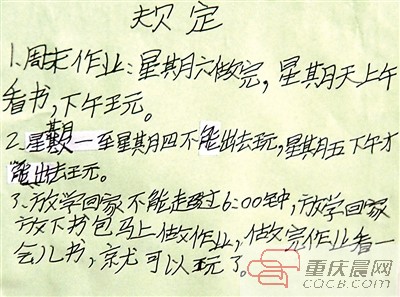 规定
1.周末作业:星期六做完,星期天上午
看书,下午玩。
2.星期一至星期四不能出去玩,星期五下午才
能出去玩。
3.放学回家不能走超过6:00钟,放学回家
放下书包马上做作业,做完作业看一
会儿书,就可以玩了。
重庆晨网
CQCB.COM